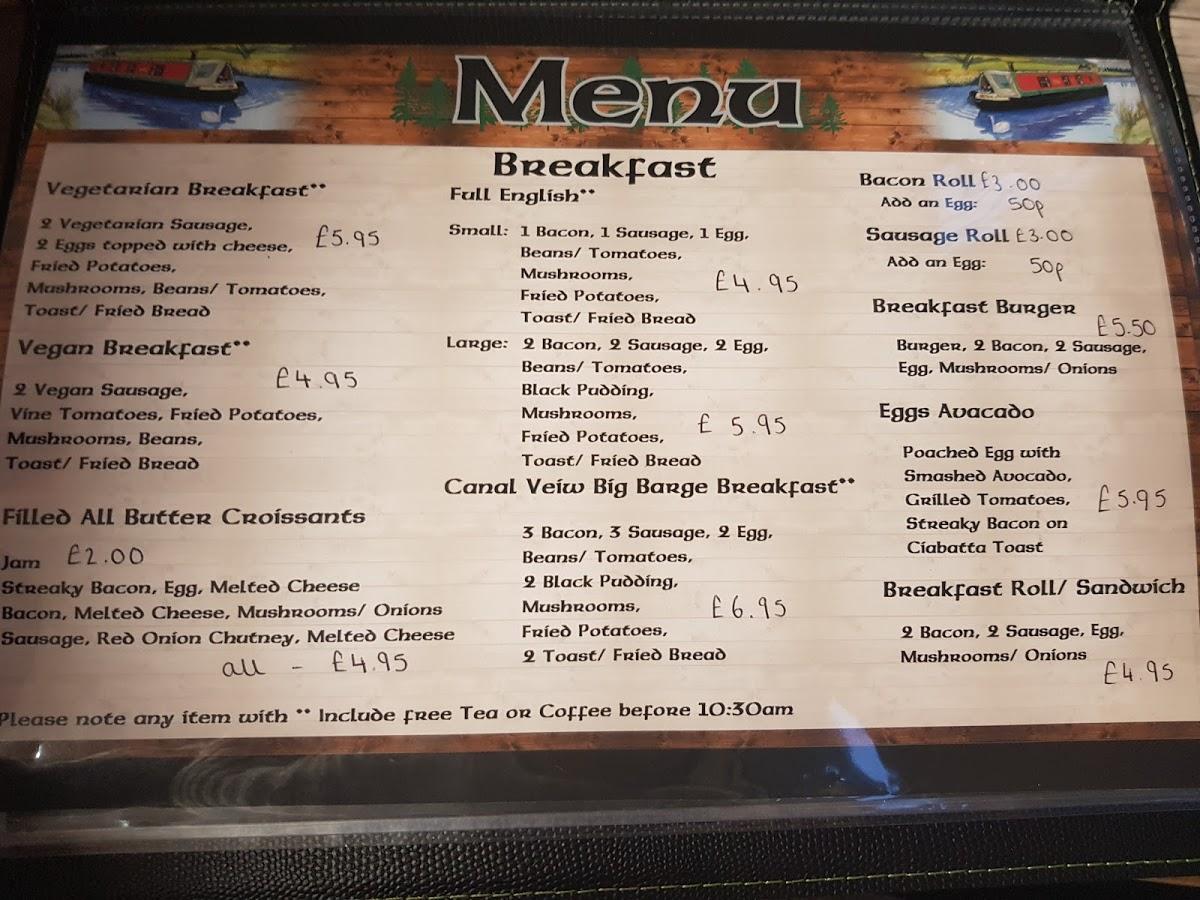 Menu
Breakfast
Vegetarian Breakfast**
2 Vegetarian Sausage,
2 Eggs topped with cheese, £5.95
Fried Potatoes,
Mushrooms, Beans/ Tomatoes,
Toast/ Fried Bread
Vegan Breakfast**
£4.95
2 Vegan Sausage,
Vine Tomatoes, Fried Potatoes,
Mushrooms, Beans,
Toast/ Fried Bread
Filled All Butter Croissants
Jam £2.00
Streaky Bacon, Egg, Melted Cheese
Bacon, Melted Cheese, Mushrooms/ Onions
Sausage, Red Onion Chutney, Melted Cheese
all - £4.95
Full English**
Small: 1 Bacon, 1 Sausage, 1 Egg,
Beans/ Tomatoes,
Mushrooms, £4.95
Fried Potatoes,
Toast/ Fried Bread
Large: 2 Bacon, 2 Sausage, 2 Egg,
Beans/ Tomatoes,
Black Pudding,
Mushrooms, £ 5.95
Fried Potatoes,
Toast/ Fried Bread
Canal Veiw Big Barge Breakfast**
3 Bacon, 3 Sausage, 2 Egg,
Beans/ Tomatoes,
2 Black Pudding,
Mushrooms, £6.95
Fried Potatoes,
2 Toast/ Fried Bread
Bacon Roll £3.00
Add an Egg: 50p
Sausage Roll £3.00
Add an Egg: 50p
Breakfast Burger
£5.50
Burger, 2 Bacon, 2 Sausage,
Egg, Mushrooms/ Onions
Eggs Avacado
Poached Egg with
Smashed Avocado,
Grilled Tomatoes, £5.95
Streaky Bacon on
Ciabatta Toast
Breakfast Roll/ Sandwich
2 Bacon, 2 Sausage, Egg,
Mushrooms/ Onions
£4.95
Please note any item with ** Include free Tea or Coffee before 10:30am